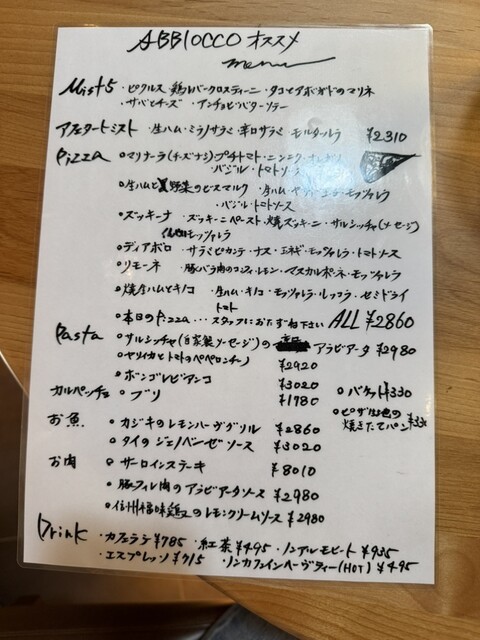 ABBIOCCO オススメ
menu
Mist5 ・ピクルス 鶏レバークロスティーニ ・タコとアボガドのマリネ
・サバとチーズ ・アンチョビバター
アフェタートミスト ・生ハム・ミラノサラミ・辛口サラミ・モルタデッラ ¥2310
Pizza ○マリナーラ(チーズナシ) プチトマト・ニンニク・オレガノ
バジル・トマトソース
○生ハムと夏野菜のビスマルク 生ハム・モッツァレラ
・バジル・トマトソース
○ズッキーナ ズッキーニペースト・焼ズッキーニ・サルシッチャ(ソーセージ)
モッツァレラ
○ディアボロ サラミピカンテ・ナス・玉ネギ・モッツァレラ・トマトソース
○リモーネ 豚バラ肉のコンフィ・レモン・マスカルポーネ・モッツァレラ
○焼生ハムとキノコ 生ハム・キノコ・モッツァレラ・ルッコラ・セミドライ
トマト
○本日のPizza...スタッフにおたずね下さい ALL ¥2860
Pasta ○サルシッチャ(自家製ソーセージ)の アラビアータ ¥2980
○ヤリイカとトマトのペペロンチーノ ¥2920
○ボンゴレビアンコ ¥3020
カルパッチョ ○ブリ ¥1780
○バケット¥330
○ピザ生地の
焼きたてパン ¥330
お魚 ○カジキのレモンハーブグリル ¥2860
○タイのジェノベーゼソース ¥3020
お肉 ○サーロインステーキ ¥8010
○豚フィレ肉のアラビアータソース ¥2980
○信州福味鶏のレモンクリームソース ¥2980
Drink ・カフェラテ¥785 ・紅茶¥495 ・ノンアルモヒート ¥935
・エスプレッソ¥715 ・ノンカフェインハーブティー(HOT) ¥495